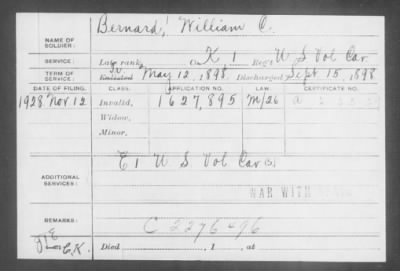 Bernard, William C.
NAME OF SOLDIER:
SERVICE: Late rank, Co. K 1 Reg't U S Vol Cav.
TERM OF SERVICE: Enlisted May 12, 1898. Discharged Sept 15, 1898
DATE OF FILING. CLASS. APPLICATION NO. LAW. CERTIFICATE NO.
1928 Nov 12 Invalid, 1627,895 M/26
Widow,
Minor,
ADDITIONAL SERVICES: E 1 U S Vol Cav (S)
WAR WITH
REMARKS: C 2276496
Died , 1 , at